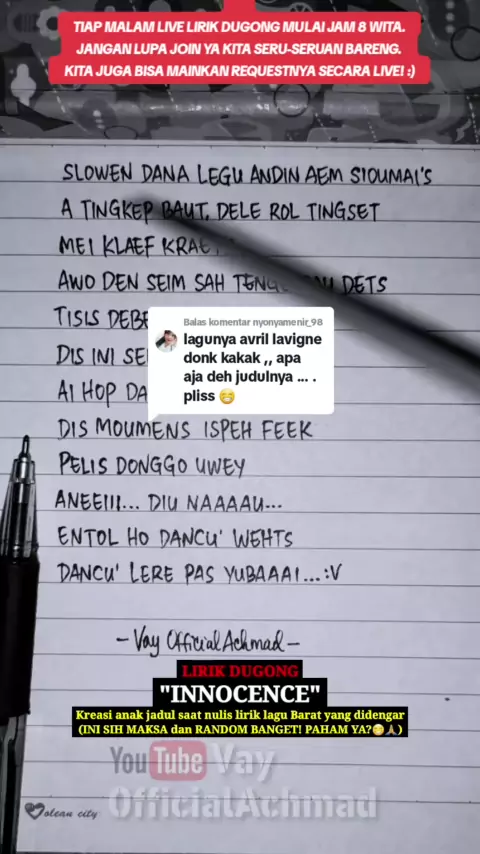 TIAP MALAM LIVE LIRIK DUGONG MULAI JAM 8 WITA.
JANGAN LUPA JOIN YA KITA SERU-SERUAN BARENG.
KITA JUGA BISA MAINKAN REQUESTNYA SECARA LIVE! :)
SLOWEN DANA LEGU ANDIN AEM SIOUMAI'S
A TINGKEP BAUT, DELE ROL TINGSET
MEI KLAEF
AWO DEN SEIM SAH DETS
TISIS
DIS INI
AI HOP
Balas komentar nyonyamenir_98
lagunya avril lavigne
donk kakak ,, apa
aja deh judulnya ... .
pliss 😁
DIS MOUMENS ISPEH FEEK
PELIS DONGGO UWEY
ANEEIII... DIU NAAAAU...
ENTOL HO DANCU' WEHTS
DANCU' LERE PAS YUBAAAI...:V
- Vay OfficialAchmad -
LIRIK DUGONG
"INNOCENCE"
Kreasi anak jadul saat nulis lirik lagu Barat yang didengar
(INI SIH MAKSA dan RANDOM BANGET! PAHAM YA?😁🙏)
YouTube Vay
OfficialAchmad
olean city